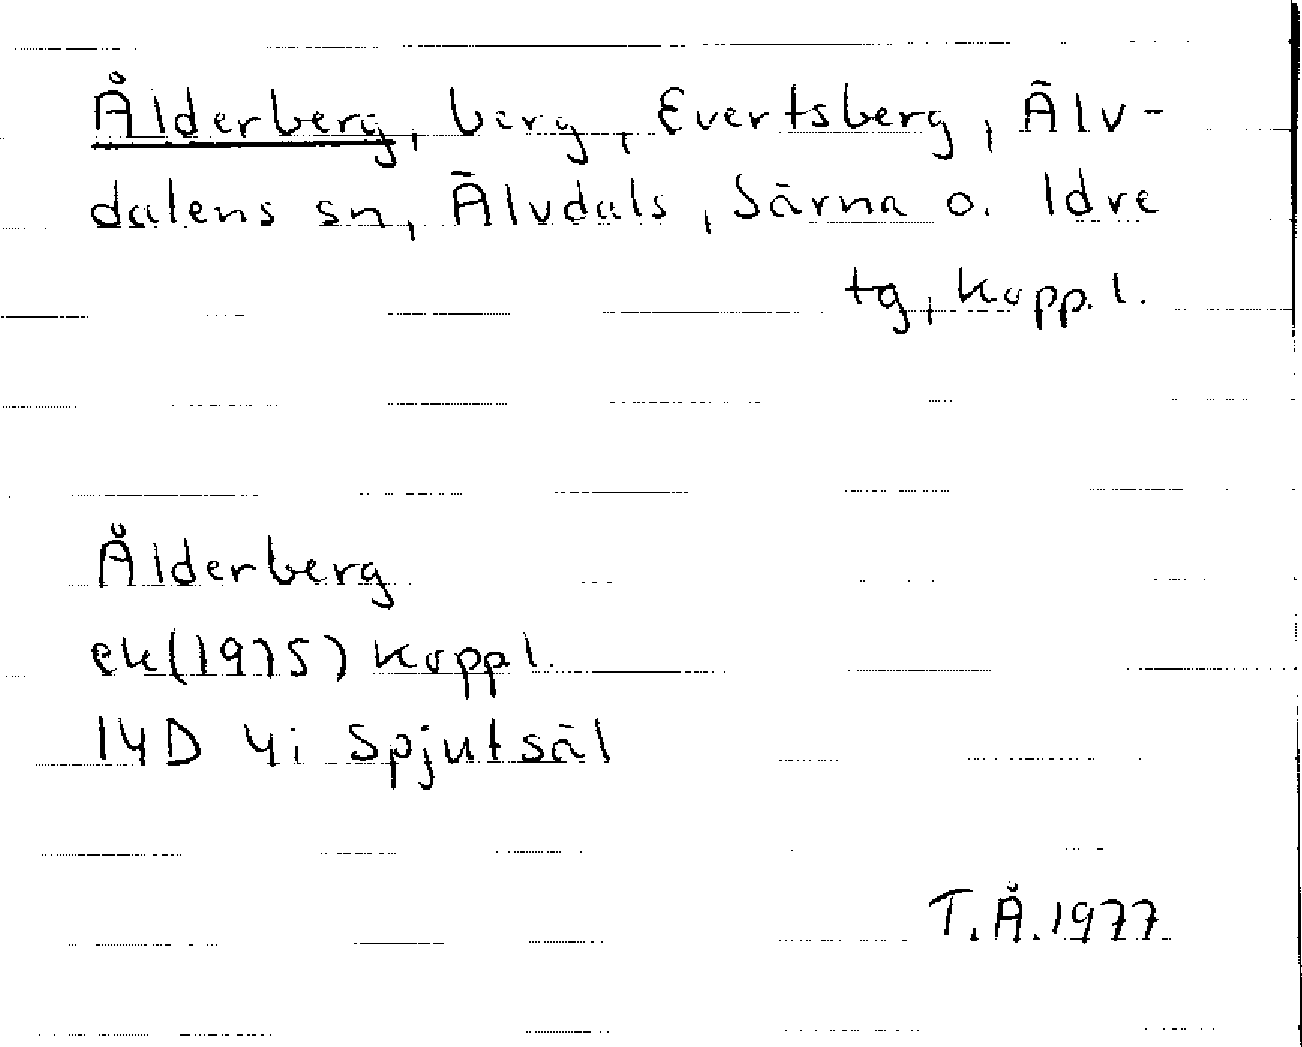 Ålderberg, berg, Evertsberg, Älv-
dalens sn, Älvdals, Särna o. Idre
tg, Kopp.l.
Ålderberg
ek(1975) Koppl.
14D 4i Spjutsäl
T.Å.1977